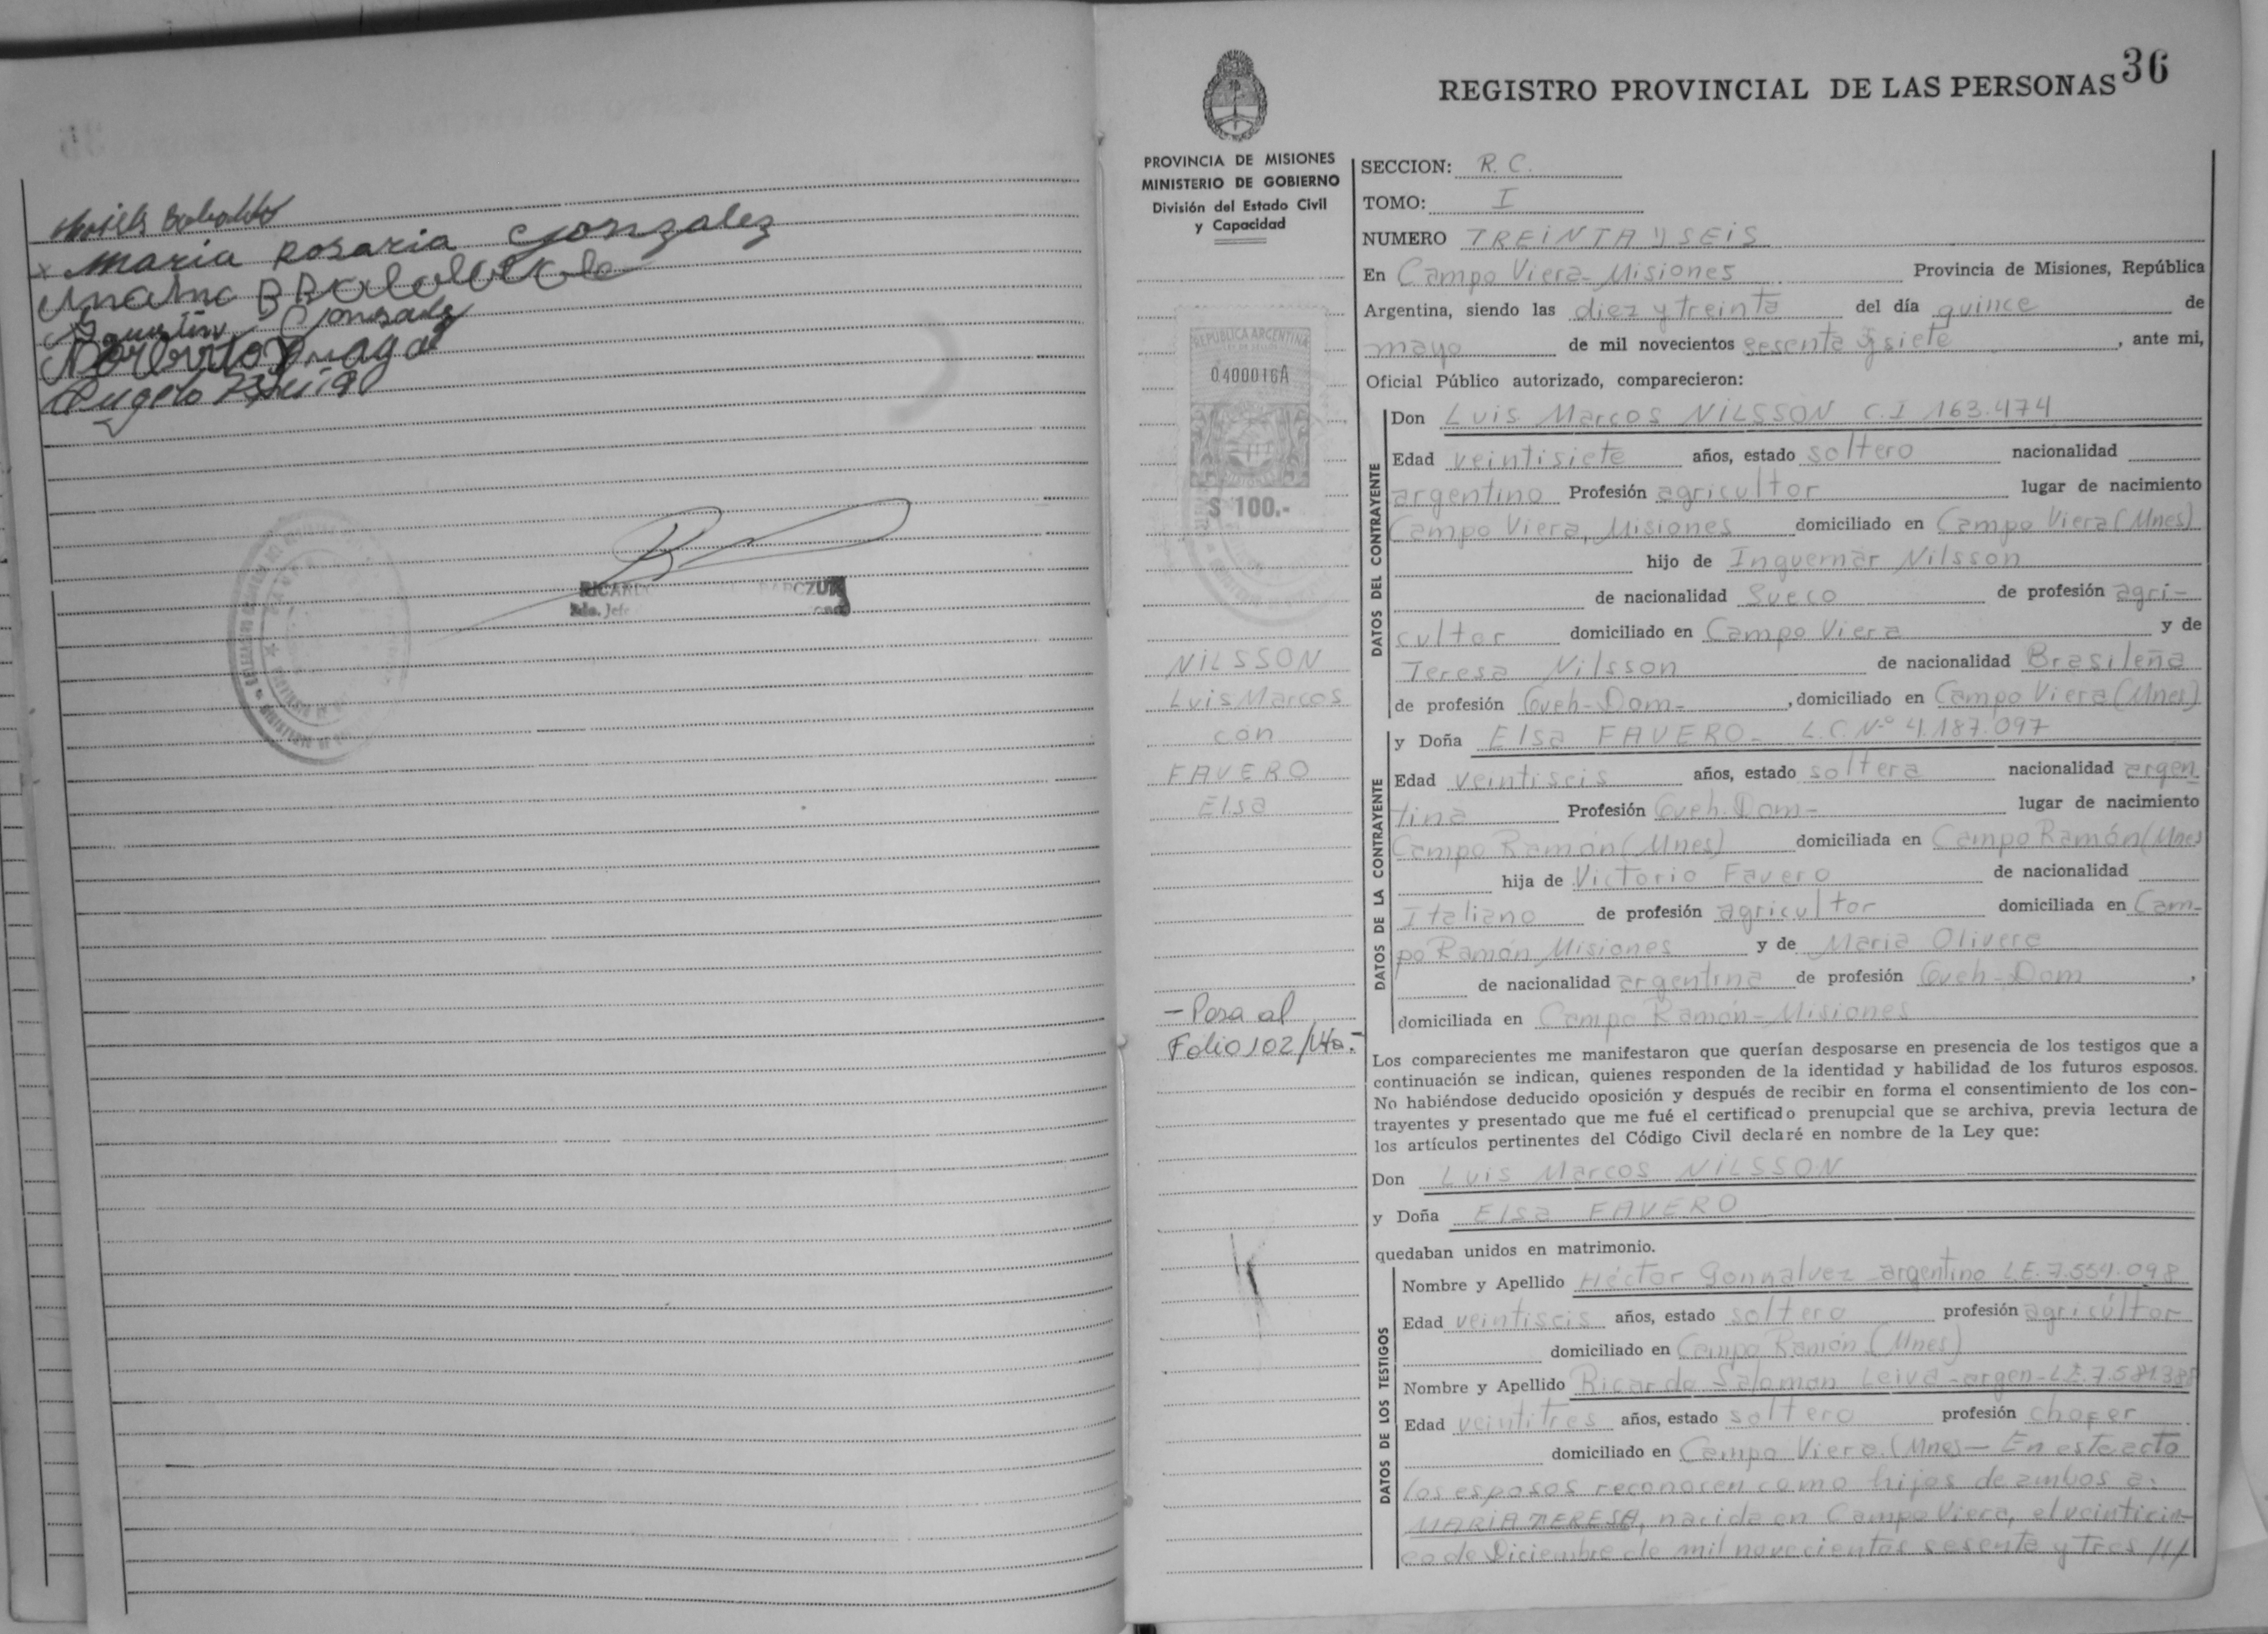 Maria Rosaria Gonzalez
Agustin Gonsalez
RICAR
REGISTRO PROVINCIAL DE LAS PERSONAS 36
PROVINCIA DE MISIONES
MINISTERIO DE GOBIERNO
División del Estado Civil
y Capacidad
REPUBLICA ARGENTINA
0400016A
$ 100.-
NILSSON
Luis Marcos
con
FAVERO
Elsa
- Pasa al
Folio 102/Vto.-
SECCION: R. C.
TOMO: I
NUMERO TREINTA Y SEIS
En Campo Viera - Misiones Provincia de Misiones, República
Argentina, siendo las diez y treinta del día quince de
mayo de mil novecientos sesenta y siete, ante mi,
Oficial Público autorizado, comparecieron:
DATOS DEL CONTRAYENTE
Don Luis Marcos NILSSON C.I 163.474
Edad veintisiete años, estado soltero nacionalidad
argentino Profesión agricultor lugar de nacimiento
Campo Viera, Misiones domiciliado en Campo Viera (Mnes)
hijo de Inguemar Nilsson
de nacionalidad Sueco de profesión agri-
cultor domiciliado en Campo Viera y de
Teresa Nilsson de nacionalidad Brasileña
de profesión Queh-Dom-, domiciliado en Campo Viera (Mnes)
DATOS DE LA CONTRAYENTE
y Doña Elsa FAVERO - L.C. Nº 4.187.097
Edad veintiseis años, estado soltera nacionalidad argen-
tina Profesión Queh. Dom- lugar de nacimiento
Campo Ramón (Mnes) domiciliada en Campo Ramón (Mnes
hija de Victorio Favero de nacionalidad
Italiano de profesión agricultor domiciliada en Cam-
po Ramón Misiones y de Maria Olivera
de nacionalidad argentina de profesión Queh-Dom,
domiciliada en Campo Ramón - Misiones
Los comparecientes me manifestaron que querían desposarse en presencia de los testigos que a
continuación se indican, quienes responden de la identidad y habilidad de los futuros esposos.
No habiéndose deducido oposición y después de recibir en forma el consentimiento de los con-
trayentes y presentado que me fué el certificado prenupcial que se archiva, previa lectura de
los artículos pertinentes del Código Civil declaré en nombre de la Ley que:
Don Luis Marcos NILSSON
y Doña Elsa FAVERO
quedaban unidos en matrimonio.
DATOS DE LOS TESTIGOS
Nombre y Apellido Héctor Gonnalvez - argentino L.E. 7.554.098
Edad veintiseis años, estado soltero profesión agricultor
domiciliado en Campo Ramón (Mnes)
Nombre y Apellido Ricardo Salomon Leiva - argen - L.E. 7.581.388
Edad veintitres años, estado soltero profesión chofer
domiciliado en Campo Viera. (Mnes) - En este acto
los esposos reconocen como hijos de ambos a:
MARIA TERESA, nacida en Campo Viera, el veinticin-
co de Diciembre de mil novecientos sesenta y tres ///